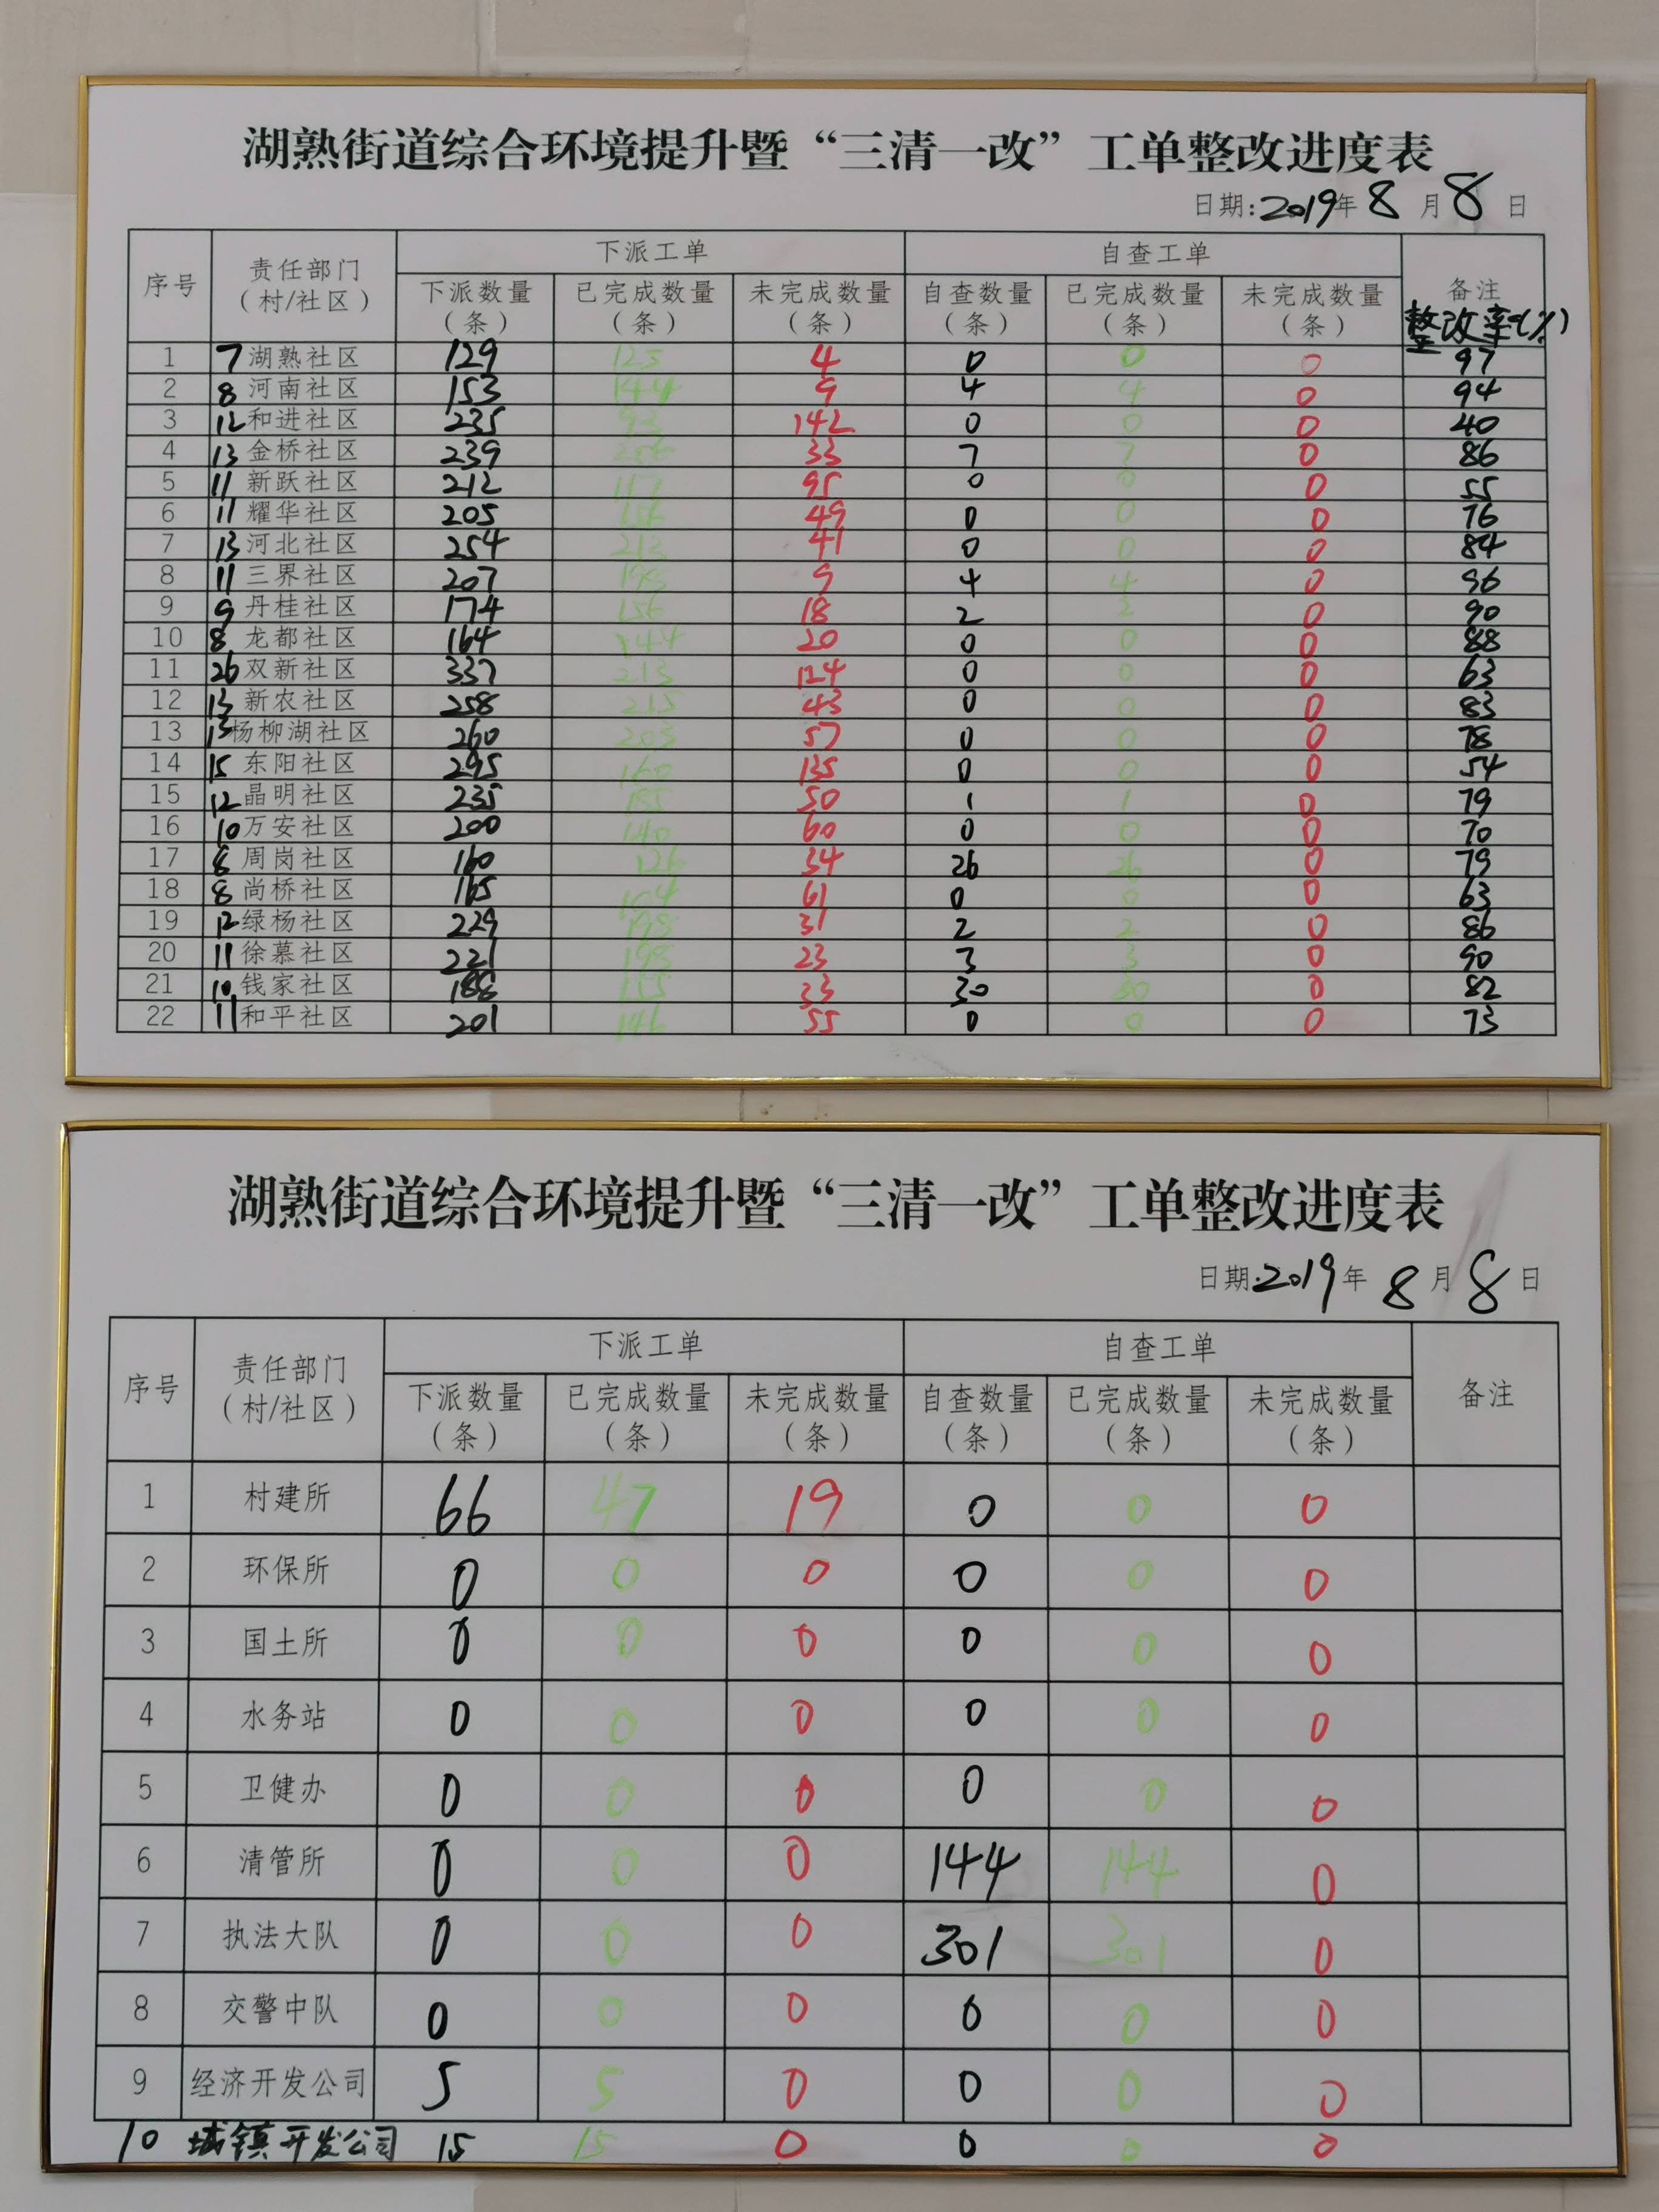 湖熟街道综合环境提升暨“三清一改”工单整改进度表
日期:2019年8月8日
序号 责任部门（村/社区） 下派工单 自查工单 备注
下派数量（条） 已完成数量（条） 未完成数量（条） 自查数量（条） 已完成数量（条） 未完成数量（条） 整改率(%)
1 7 湖熟社区 129 125 4 0 0 0 97
2 8 河南社区 153 144 9 4 4 0 94
3 12 和进社区 235 93 142 0 0 0 40
4 13 金桥社区 239 206 33 7 7 0 86
5 11 新跃社区 212 117 95 0 0 0 55
6 11 耀华社区 205 156 49 0 0 0 76
7 13 河北社区 254 213 41 0 0 0 84
8 11 三界社区 207 198 9 4 4 0 96
9 9 丹桂社区 174 156 18 2 2 0 90
10 8 龙都社区 164 144 20 0 0 0 88
11 26 双新社区 337 213 124 0 0 0 63
12 13 新农社区 258 215 43 0 0 0 83
13 13 杨柳湖社区 260 203 57 0 0 0 78
14 15 东阳社区 295 160 135 0 0 0 54
15 12 晶明社区 235 185 50 1 1 0 79
16 10 万安社区 200 140 60 0 0 0 70
17 8 周岗社区 160 126 34 26 26 0 79
18 8 尚桥社区 165 104 61 0 0 0 63
19 12 绿杨社区 229 198 31 2 2 0 86
20 11 徐慕社区 221 198 23 3 3 0 90
21 10 钱家社区 188 155 33 30 30 0 82
22 11 和平社区 201 146 55 0 0 0 73
湖熟街道综合环境提升暨“三清一改”工单整改进度表
日期:2019年8月8日
序号 责任部门（村/社区） 下派工单 自查工单 备注
下派数量（条） 已完成数量（条） 未完成数量（条） 自查数量（条） 已完成数量（条） 未完成数量（条）
1 村建所 66 47 19 0 0 0
2 环保所 0 0 0 0 0 0
3 国土所 0 0 0 0 0 0
4 水务站 0 0 0 0 0 0
5 卫健办 0 0 0 0 0 0
6 清管所 0 0 0 144 144 0
7 执法大队 0 0 0 301 301 0
8 交警中队 0 0 0 0 0 0
9 经济开发公司 5 5 0 0 0 0
10 城镇开发公司 15 15 0 0 0 0